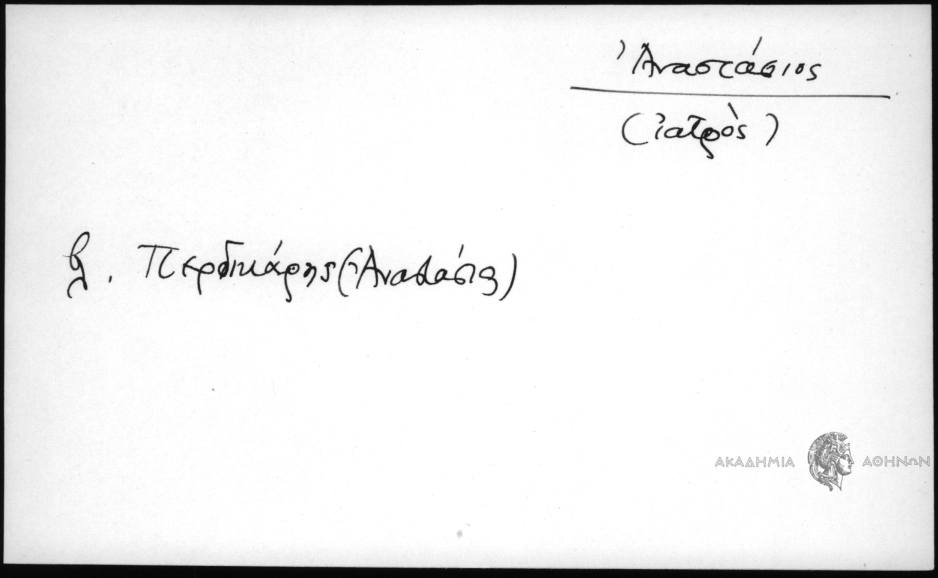 Ἀναστάσιος
(ἰατρὸς)
βλ. Περδικάρης (Ἀναστάσιος)
ΑΚΑΔΗΜΙΑ ΑΘΗΝΩΝ